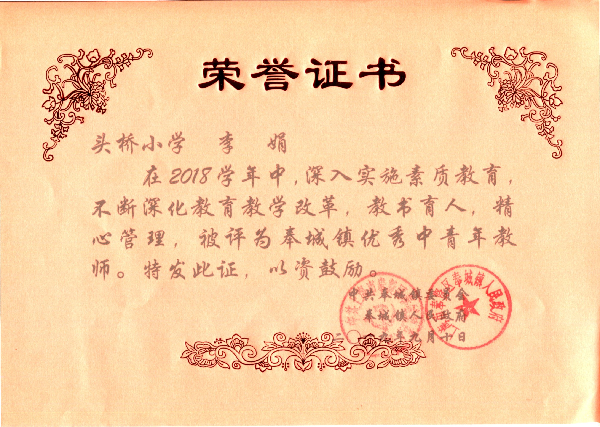 荣誉证书
头桥小学 李 娟
在2018学年中,深入实施素质教育,
不断深化教育教学改革,教书育人,精
心管理,被评为奉城镇优秀中青年教
师。特发此证,以资鼓励。
中共奉城镇委员会
奉城镇人民政府
年九月十日
奉城镇人民政府